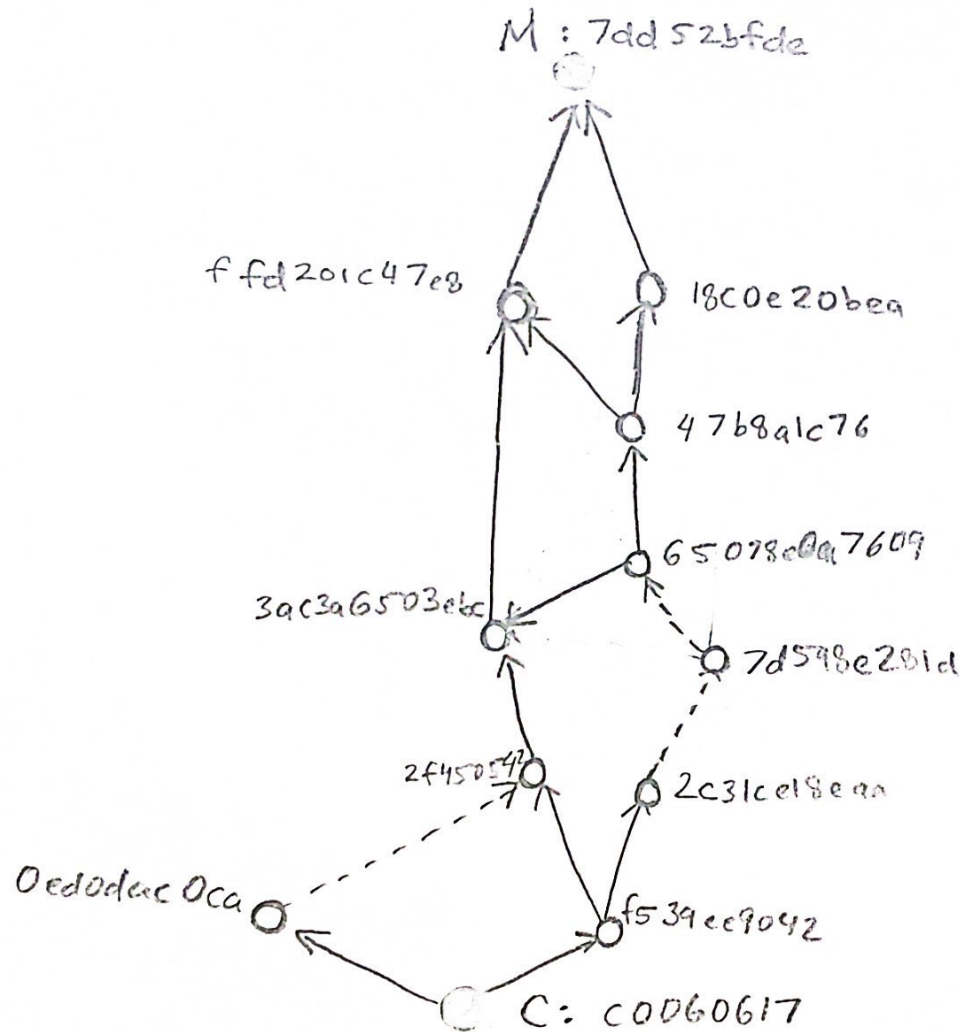 M : 7dd52bfde
ffd201c47e8
18c0e20bea
47b8a1c76
65078c0a7609
3ac3a6503ebc
7d598e281d
2f450542
2c31ce18eaa
0ed0dac0ca
f539ec9042
C: c0060617